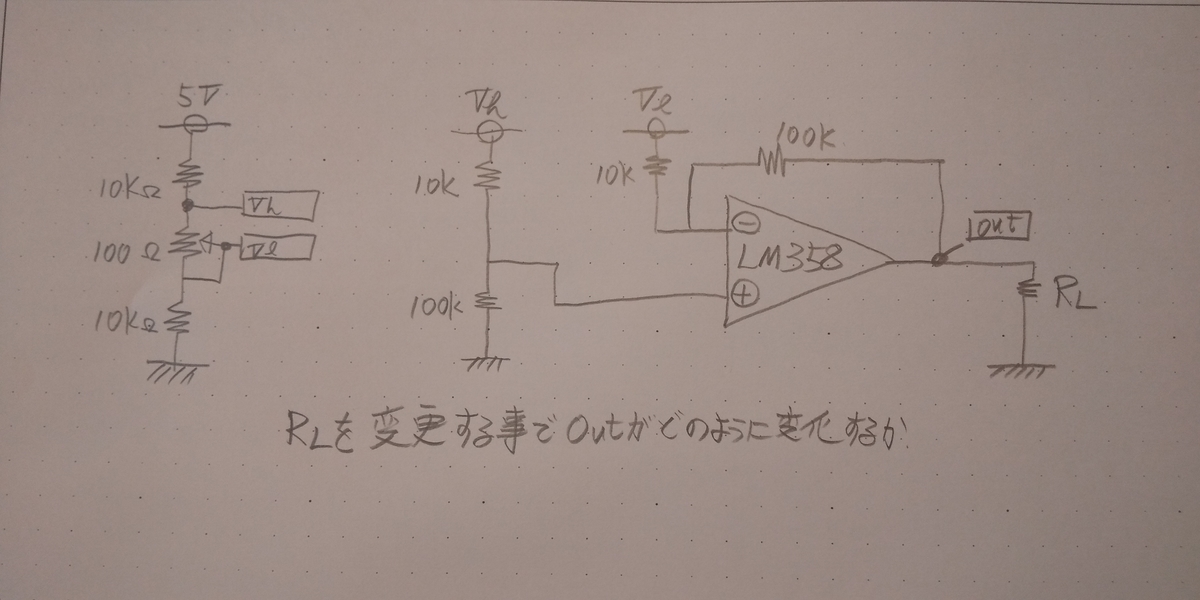 5V
Vh
Vl
100k
10kΩ
Vh
10k
10k
100Ω
Vl
LM358
Out
10kΩ
100k
RL
RLを変更する事でOutがどのように変化するか